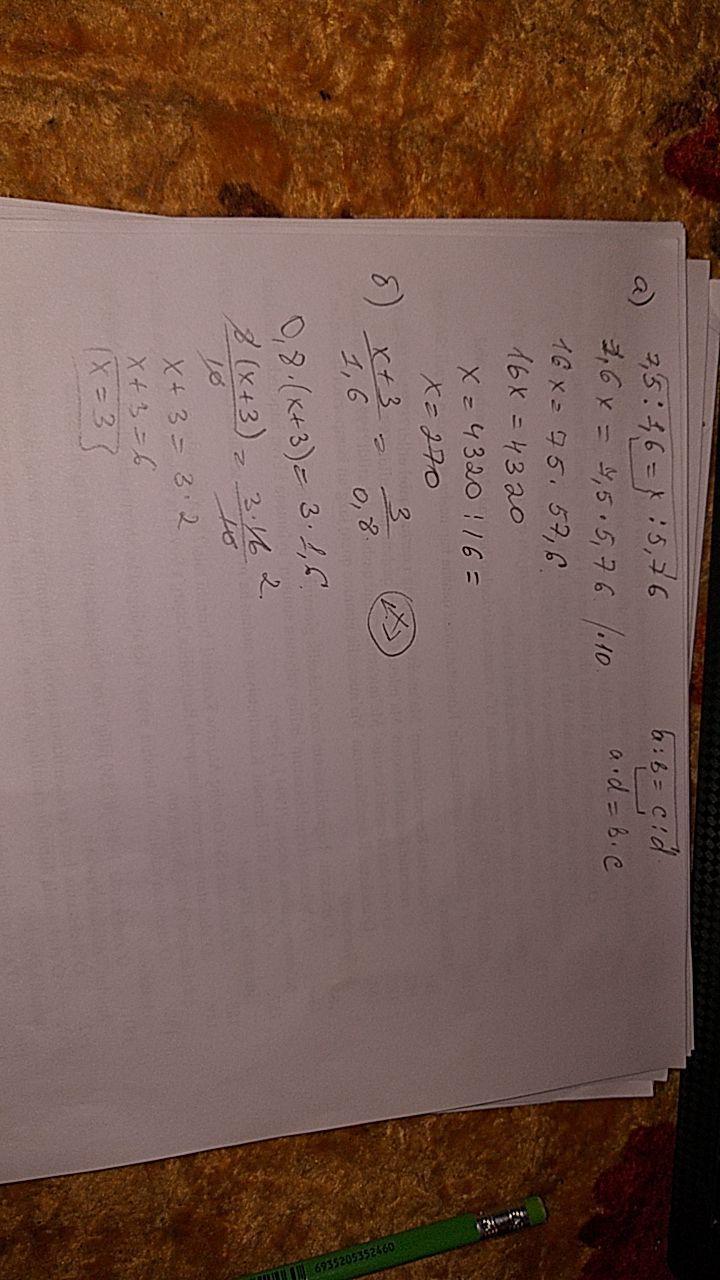 а) 7,5 : 1,6 = x : 5,76
a : b = c : d
1,6x = 7,5 · 5,76 / ·10
a · d = b · c
16x = 75 · 57,6
16x = 4320
x = 4320 : 16 =
x = 270
б) x+3/1,6 = 3/0,8
0,8 · (x+3) = 3 · 1,6
8(x+3)/10 = 3·16/10 2
x + 3 = 3 · 2
x + 3 = 6
x = 3
6935205352460